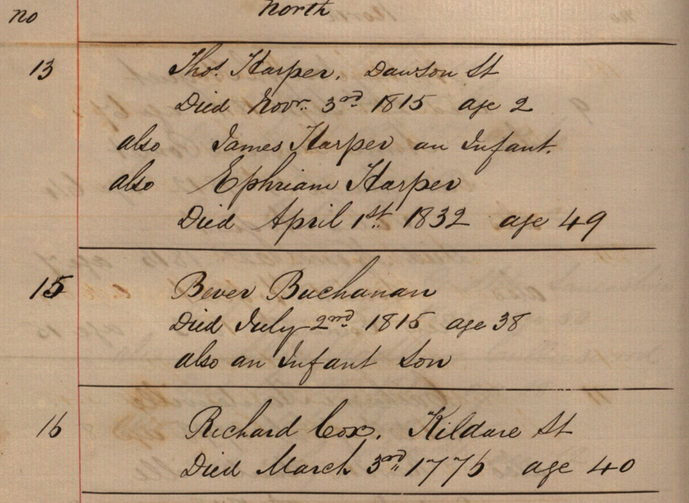 no North
13 Thos. Harper. Dawson St
Died Novr. 3rd 1815 age 2
also James Harper an Infant.
also Ephriam Harper
Died April 1st 1832 age 49
15 Bever Buchanan
Died July 2nd 1815 age 38
also an Infant Son
16 Richard Cox. Kildare St
Died March 3rd 1776 age 40